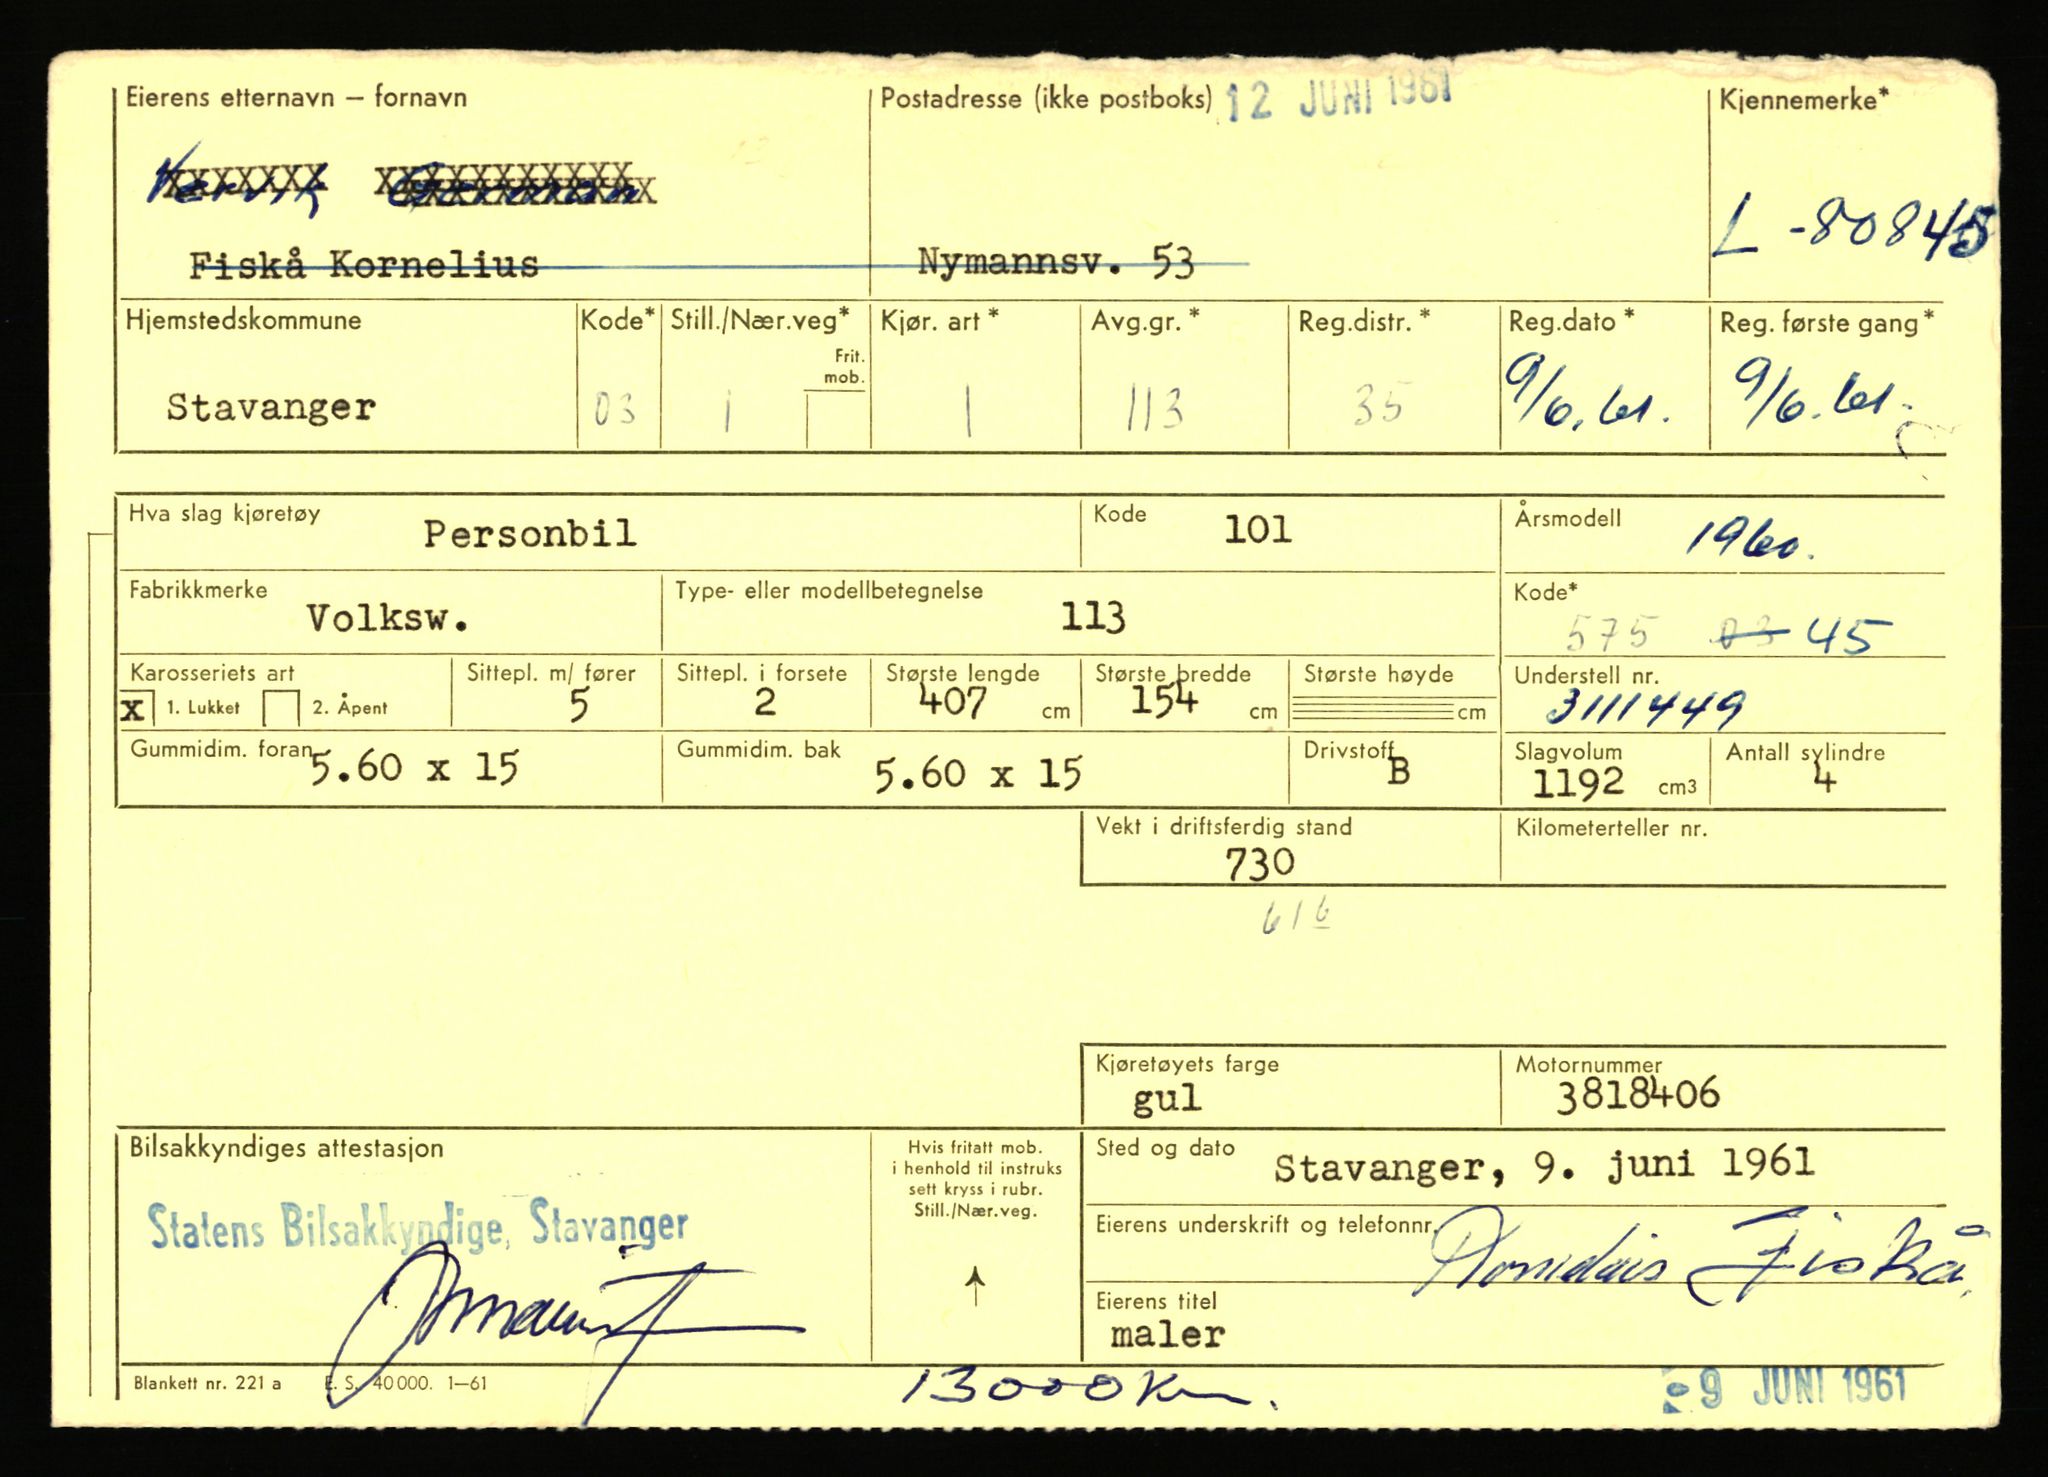 Eierens etternavn – fornavn
Postadresse (ikke postboks) 12 JUNI 1961
Kjennemerke*
Fiskå Kornelius
Nymannsv. 53
L -80845
Hjemstedskommune
Kode* Still./Nær.veg* Kjør. art * Avg.gr. * Reg.distr. * Reg.dato * Reg. første gang*
Frit.
mob.
Stavanger 03 1 1 113 35 9/6.61. 9/6.61.
Hva slag kjøretøy Personbil
Kode 101
Årsmodell 1960.
Fabrikkmerke Volksw.
Type- eller modellbetegnelse 113
Kode*
575 03 45
Karosseriets art
x 1. Lukket 2. Åpent
Sittepl. m/ fører
5
Sittepl. i forsete
2
Største lengde
407 cm
Største bredde
154 cm
Største høyde
cm
Understell nr.
3111449
Gummidim. foran 5.60 x 15
Gummidim. bak 5.60 x 15
Drivstoff B
Slagvolum
1192 cm3
Antall sylindre
4
Vekt i driftsferdig stand
730
Kilometerteller nr.
616
Kjøretøyets farge
gul
Motornummer
3818406
Bilsakkyndiges attestasjon
Statens Bilsakkyndige, Stavanger
Hvis fritatt mob.
i henhold til instruks
sett kryss i rubr.
Still./Nær.veg.
Sted og dato Stavanger, 9. juni 1961
Eierens underskrift og telefonnr. Fiskå
Eierens titel
maler
Blankett nr. 221 a E. S. 40 000. 1—61
13000 km.
9 JUNI 1961